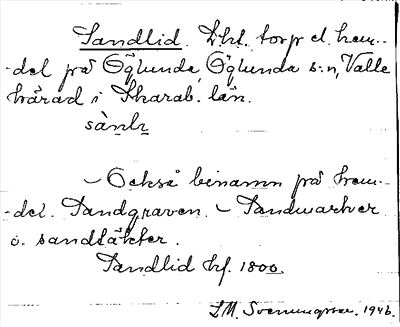 Sandlid. Lht. torp el. hem-
-del på Öglunda, Öglunda s:n, Valle
härad i Skarab. län.
sànlɩ
– Också binamn på hem-
-del. Sandgraven. –
o. sandtäkter.
Sandlid kf. 1800.
Svenungsson. 1946.